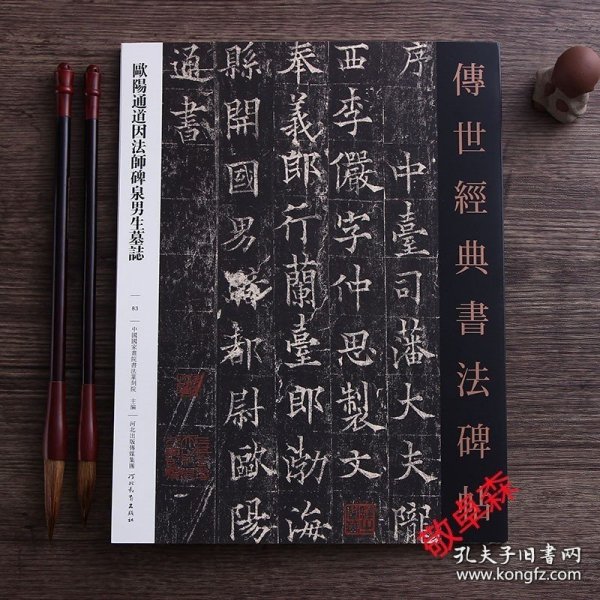 傳世經典書法碑帖
序 中臺司藩大夫隴
西李儼字仲思製文
奉義郎行蘭臺郎渤海
縣開國男騎都尉歐陽
通書
歐陽通道因法師碑泉男生墓誌
83
中國國家畫院書法篆刻院 主編
河北出版傳媒集團
河北教育出版社
孔夫子旧书网
www.kongfz.com